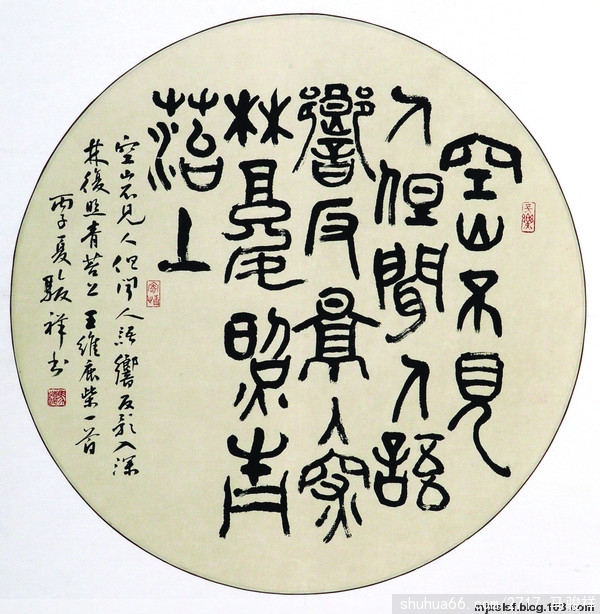 空山不見
人但聞人語
響反景入深
林復照青
菭上
空山不見人但聞人語響反影入深
林復照青苔上 王維鹿柴一首
丙子夏駿祥书